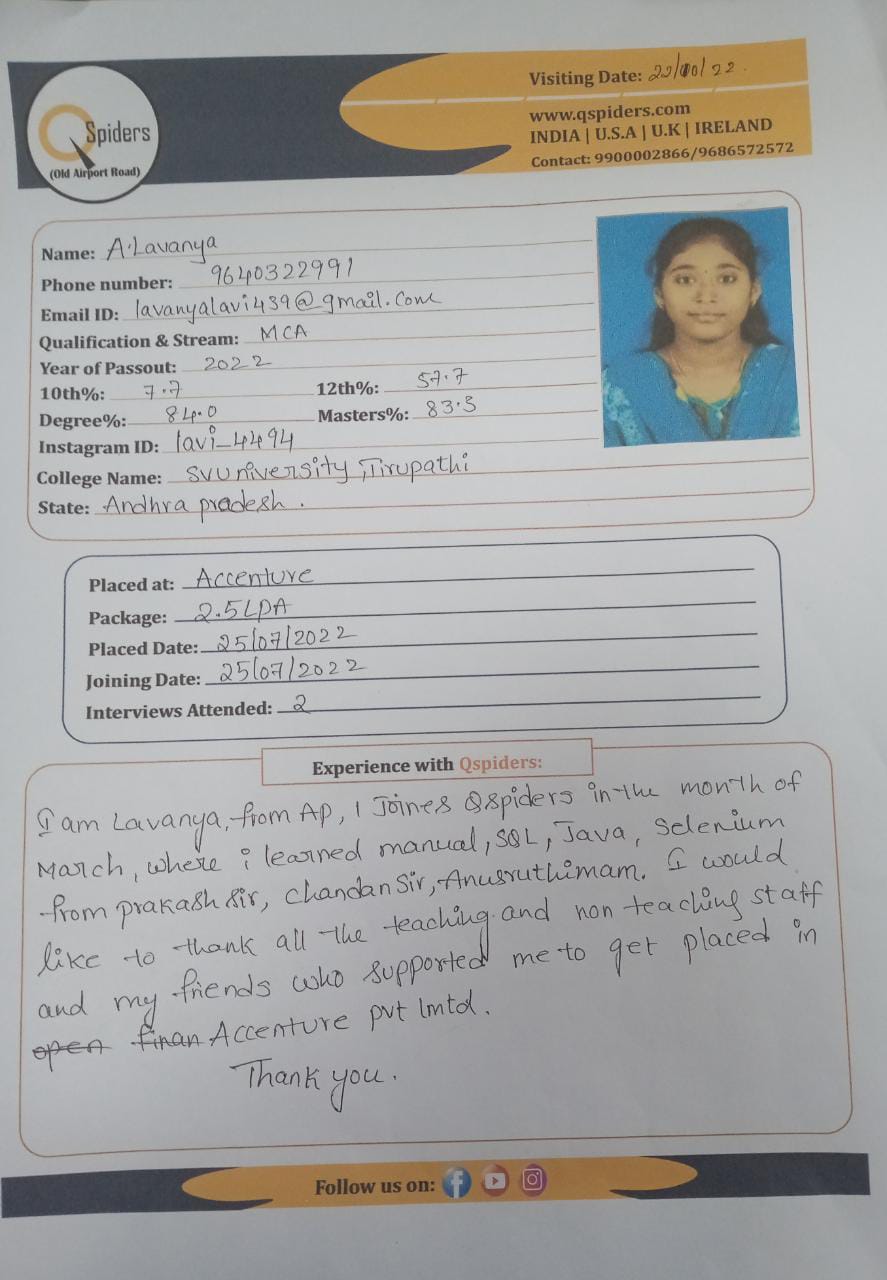 Visiting Date: 22/10/22.
QSpiders
(Old Airport Road)
www.qspiders.com
INDIA | U.S.A | U.K | IRELAND
Contact: 9900002866/9686572572
Name: A.Lavanya
Phone number: 9640322991
Email ID: lavanyalavi439@gmail.com
Qualification & Stream: MCA
Year of Passout: 2022
10th%: 7.7 12th%: 57.7
Degree%: 84.0 Masters%: 83.3
Instagram ID: lavi_4494
College Name: SVUniversity, Tirupathi
State: Andhra pradesh.
Placed at: Accenture
Package: 2.5LPA
Placed Date: 25/07/2022
Joining Date: 25/07/2022
Interviews Attended: 2
Experience with Qspiders:
I am Lavanya, from AP, I Joines Qspiders in the month of
March, where i learned manual, SQL, Java, Selenium
from prakash sir, chandan Sir, Anusruthimam. I would
like to thank all the teaching and non teaching staff
and my friends who supported me to get placed in
open finan Accenture pvt lmtd.
Thank you.
Follow us on: